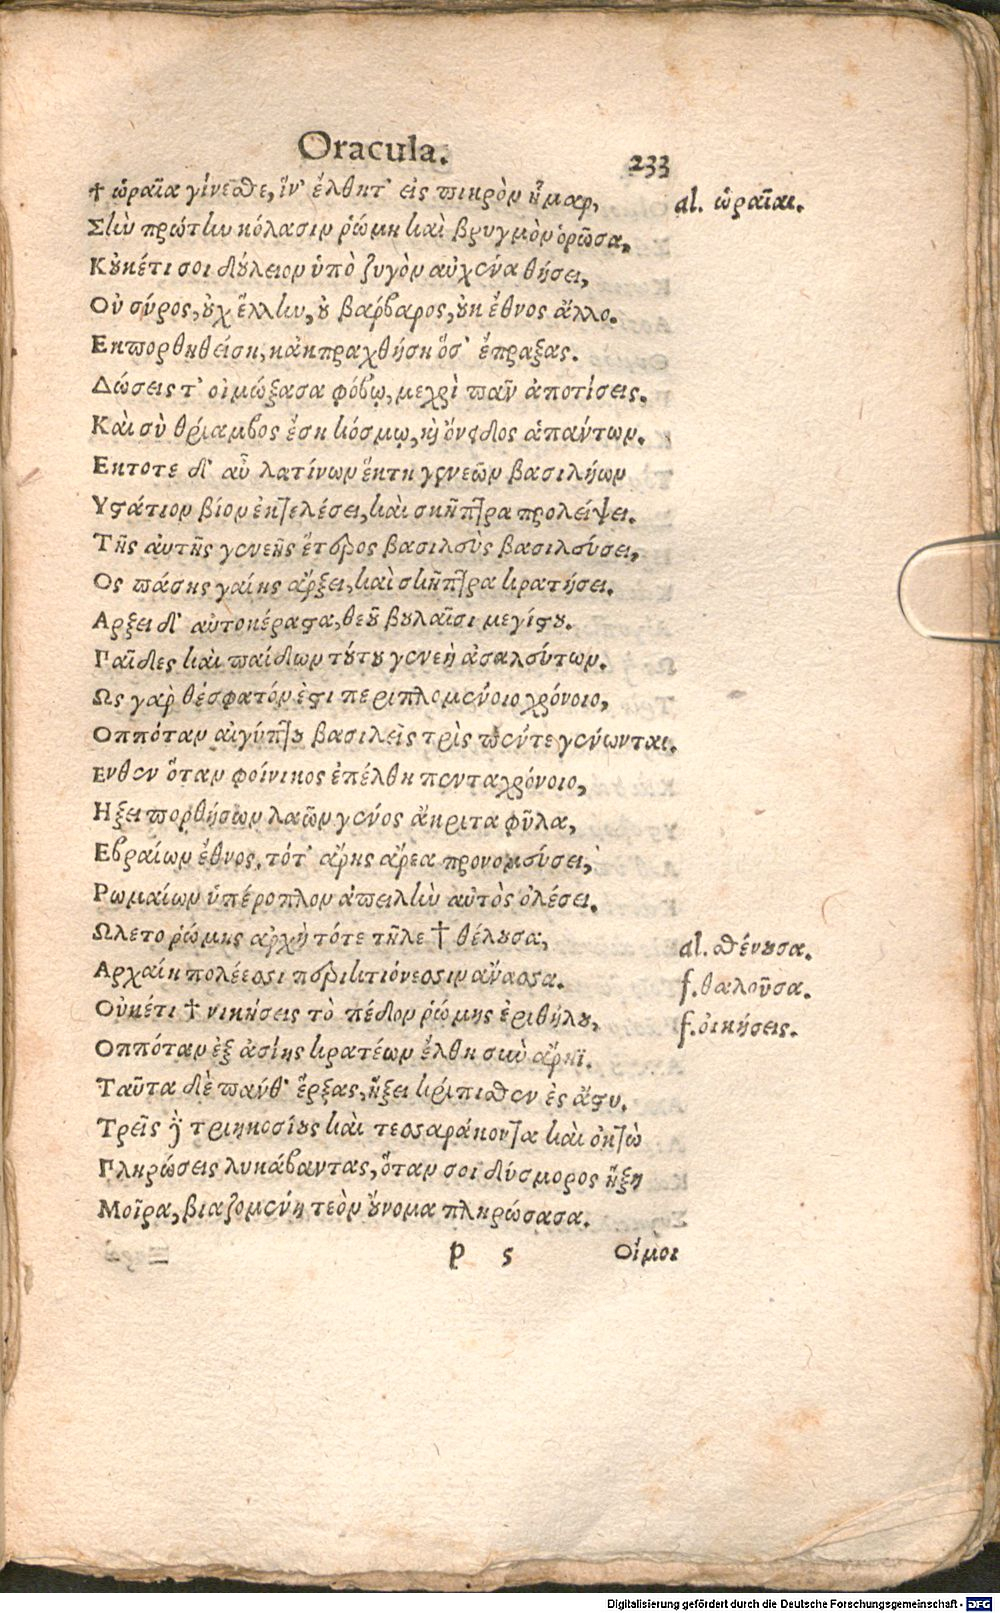 Oracula. 233
† ὡραῖα γίνεσθε, ἵν' ἔλθητ' εἰς πικρὸν ἦμαρ, al. ὡραῖαι.
Σὴν πρώτην κόλασιν ῥώμη καὶ βρυγμὸν ὁρῶσα,
Κοὐκέτι σοι δούλειον ὑπὸ ζυγὸν αὐχένα θήσει,
Οὐ σύρος, οὐχ ἕλλην, οὐ βάρβαρος, οὐκ ἔθνος ἄλλο.
Εκπορθηθείση, κἀκπραχθήση ὅσ' ἔπραξας.
Δώσεις τ' οἰμώξασα φόβῳ, μεχρὶ πᾶν ἀποτίσεις.
Καὶ σὺ θρίαμβος ἔση κόσμῳ, καὶ ὄνειδος ἁπάντων.
Εκτοτε δ' αὖ λατίνων ἕκτη γενεῶν βασιλήων
Υστάτιον βίον ἐκτελέσει, καὶ σκῆπτρα προλείψει.
Τῆς αὐτῆς γενεῆς ἕτερος βασιλεὺς βασιλεύσει,
Ος πάσης γαίης ἄρξει, καὶ σκῆπτρα κρατήσει.
Αρξει δ' αὐτοκέραστα, θεοῦ βουλαῖσι μεγίστου.
Παῖδες καὶ παίδων τούτου γενεὴ ἀσαλεύτων.
Ως γαρ θέσφατόν ἐστι περιπλομένοιο χρόνοιο,
Οππόταν αἰγύπτου βασιλεῖς τρὶς πέντε γένωνται.
Ενθεν ὅταν φοίνικος ἐπέλθη πενταχρόνοιο,
Ηξει πορθήσων λαῶν γένος ἄκριτα φῦλα,
Εβραίων ἔθνος, τότ' ἄρης ἄρεα προνομεύσει,
Ρωμαίων ὑπέροπλον ἀπειλὴν αὐτὸς ὀλέσει.
Ωλετο ῥώμης ἀρχὴ τότε τῆλε † θέλουσα, al. σθένουσα.
Αρχαίη πολέεσσι περικτιόνεσσιν ἄνασσα. f. θαλοῦσα.
Οὐκέτι † νικήσεις τὸ πέδον ῥώμης ἐριθήλου, f. οἰκήσεις.
Οππόταν ἐξ ἀσίης κρατέων ἔλθη σὺν ἄρηϊ.
Ταῦτα δὲ πάνθ' ἔρξας, ἥξει κρίπισθεν ἐς ἄστυ.
Τρεῖς δὲ τριηκοσίους καὶ τεσσαράκοντα καὶ ὀκτὼ
Πληρώσεις λυκάβαντας, ὅταν σοι δύσμορος ἥξη
Μοῖρα, βιαζομένη τεὸν οὔνομα πληρώσασα.
P 5 Οἴμοι
Digitalisierung gefördert durch die Deutsche Forschungsgemeinschaft - DFG